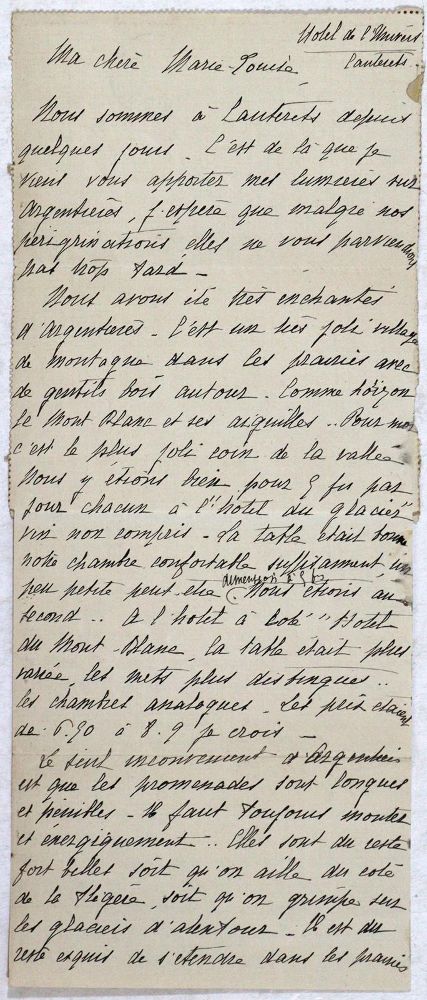 Hotel de l'Univers
Cauterets.
Ma chère Marie-Louise,
Nous sommes à Cauterets depuis
quelques jours. C'est de là que je
viens vous apporter mes lumières sur
Argentières, j'espère que malgré nos
pérégrinations elles ne vous parviendront
pas trop tard -
Nous avons été très enchantés
d'Argentières - C'est un très joli village
de montagne dans les prairies avec
de gentils bois autour. Comme horizon
le Mont Blanc et ses aiguilles .. Pour moi
c'est le plus joli coin de la vallée
Nous y étions bien pour 5 fr par
jour chacun à l'"hôtel du glacier"
vin non compris - La table était bonne
notre chambre confortable suffisamment, un
peu petite peut-être. Nous étions au
second .. A l'hôtel à côté "Hotel
du Mont-Blanc, la table était plus
variée, les mets plus distingués ..
les chambres analogues. Les prix étaient
de 6.50 à 8.9 je crois -
Le seul inconvénient d'Argentières
est que les promenades sont longues
et pénibles - Il faut toujours monter
et énergiquement .. Elles sont du reste
fort belles soit qu'on aille du côté
de la Flégère, soit qu'on grimpe sur
les glaciers d'alentour - Il est du
reste exquis de s'étendre dans les prairies